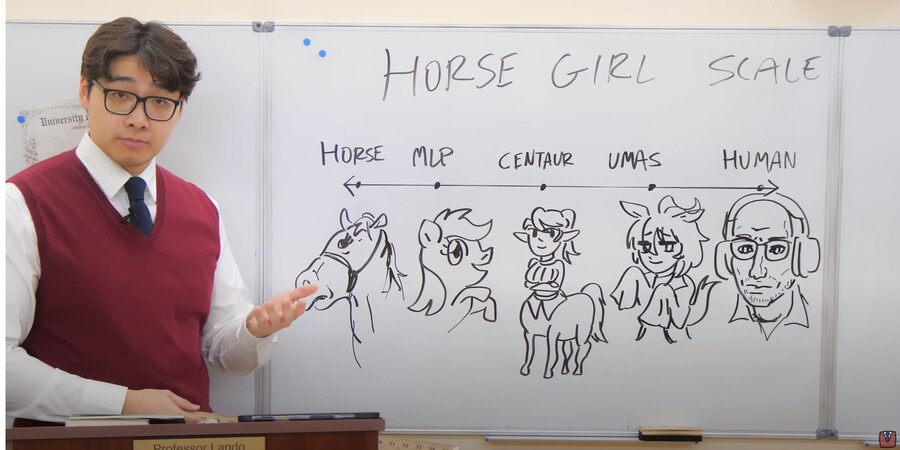 HORSE GIRL SCALE
HORSE MLP CENTAUR UMAS HUMAN
University
Professor Lando